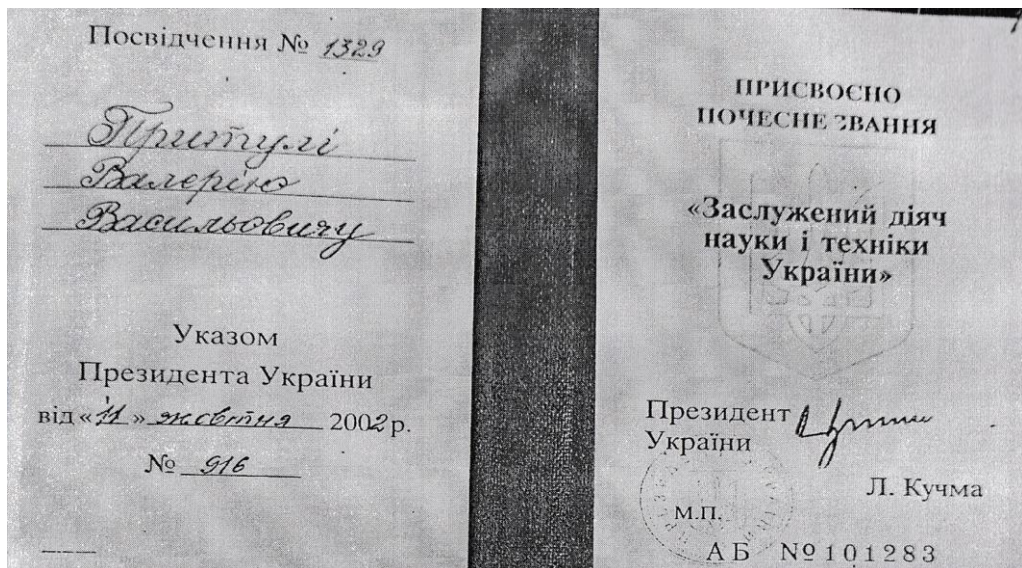 Посвідчення № 1329
Притулі
Валерію
Васильовичу
Указом
Президента України
від «11» жовтня 2002 р.
№ 916
ПРИСВОЄНО
ПОЧЕСНЕ ЗВАННЯ
«Заслужений діяч
науки і техніки
України»
Президент
України
Л. Кучма
М.П.
АБ №101283